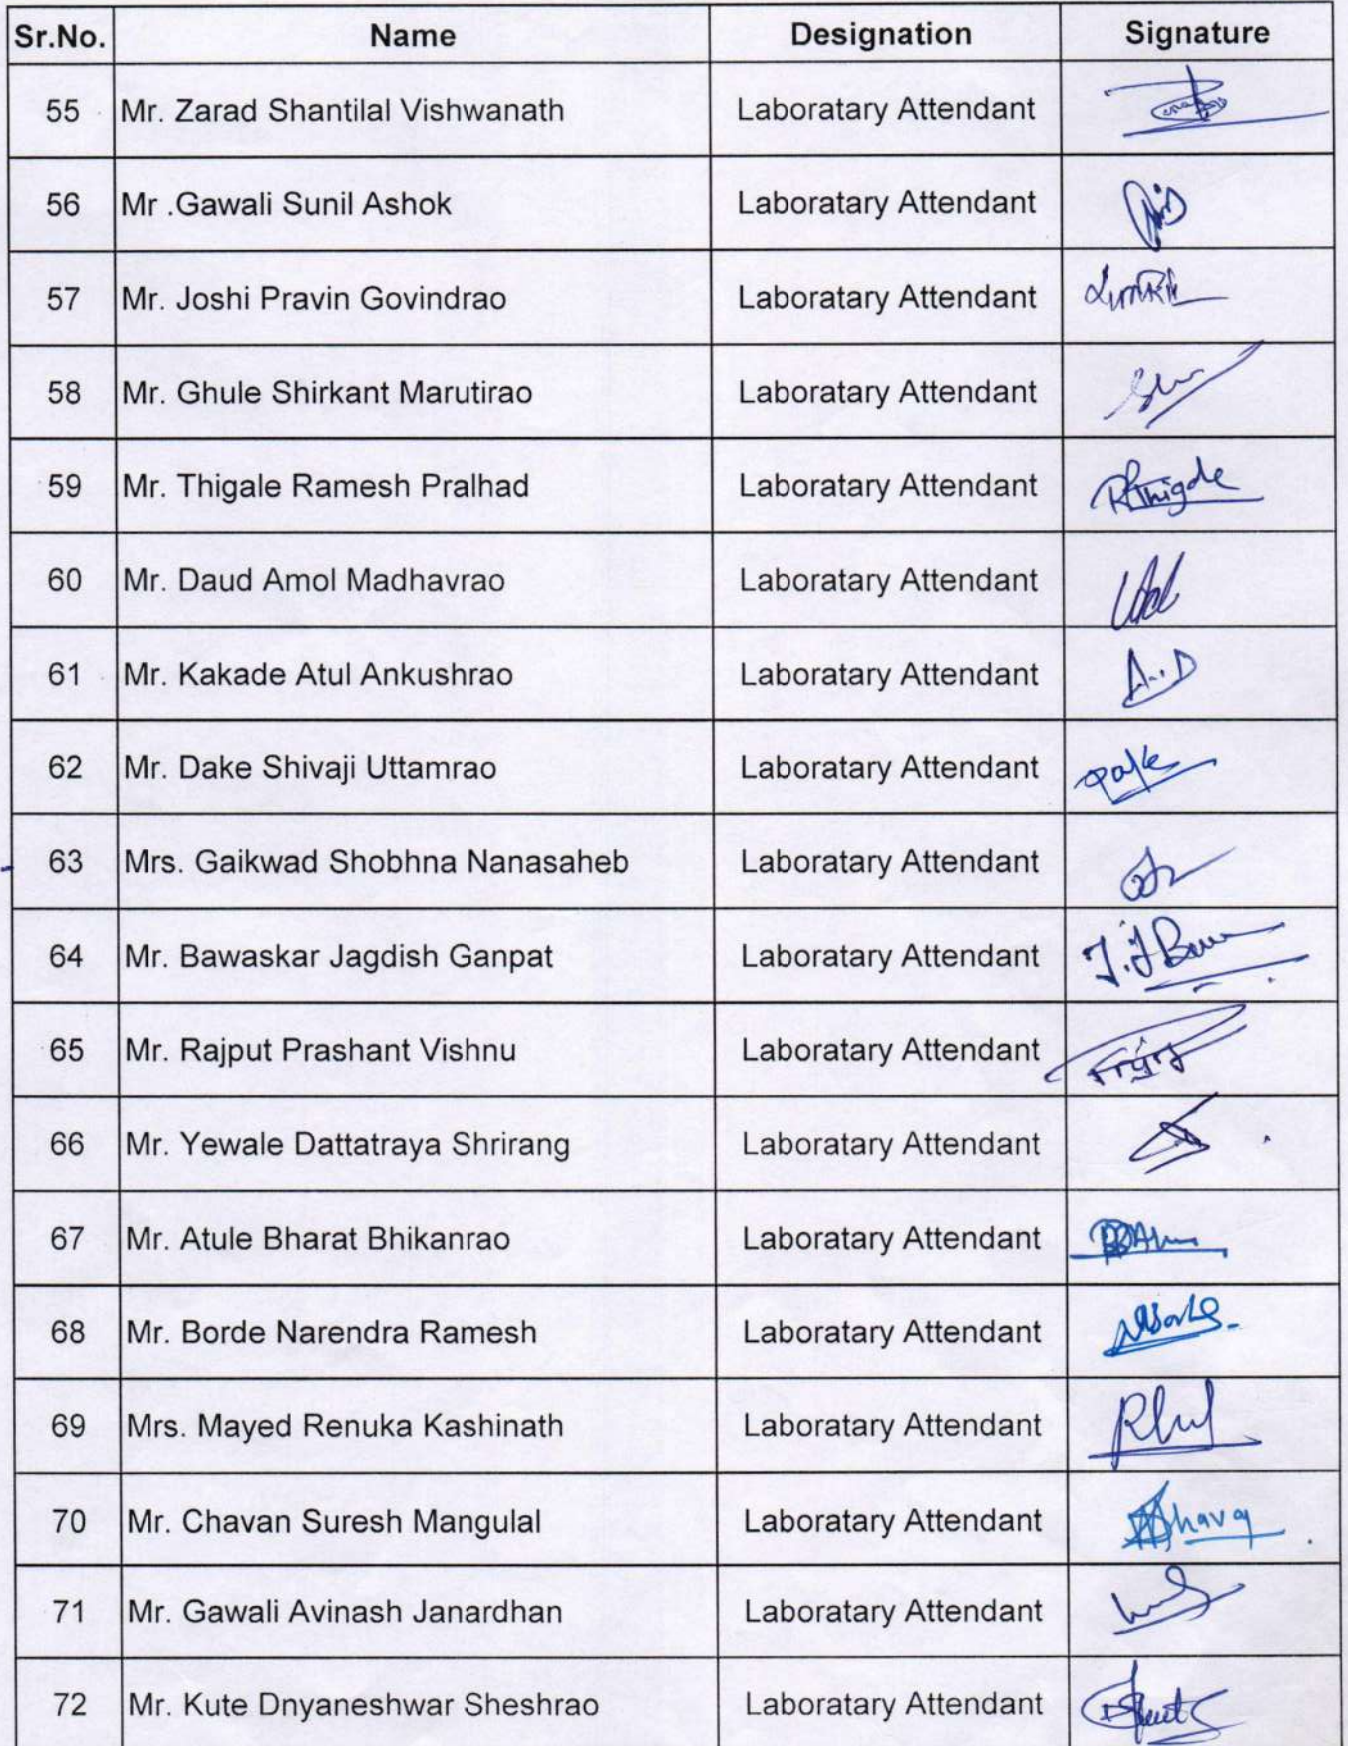 Sr.No. Name Designation Signature
55 Mr. Zarad Shantilal Vishwanath Laboratary Attendant
56 Mr .Gawali Sunil Ashok Laboratary Attendant
57 Mr. Joshi Pravin Govindrao Laboratary Attendant
58 Mr. Ghule Shirkant Marutirao Laboratary Attendant
59 Mr. Thigale Ramesh Pralhad Laboratary Attendant
60 Mr. Daud Amol Madhavrao Laboratary Attendant
61 Mr. Kakade Atul Ankushrao Laboratary Attendant
62 Mr. Dake Shivaji Uttamrao Laboratary Attendant
63 Mrs. Gaikwad Shobhna Nanasaheb Laboratary Attendant
64 Mr. Bawaskar Jagdish Ganpat Laboratary Attendant
65 Mr. Rajput Prashant Vishnu Laboratary Attendant
66 Mr. Yewale Dattatraya Shrirang Laboratary Attendant
67 Mr. Atule Bharat Bhikanrao Laboratary Attendant
68 Mr. Borde Narendra Ramesh Laboratary Attendant
69 Mrs. Mayed Renuka Kashinath Laboratary Attendant
70 Mr. Chavan Suresh Mangulal Laboratary Attendant
71 Mr. Gawali Avinash Janardhan Laboratary Attendant
72 Mr. Kute Dnyaneshwar Sheshrao Laboratary Attendant